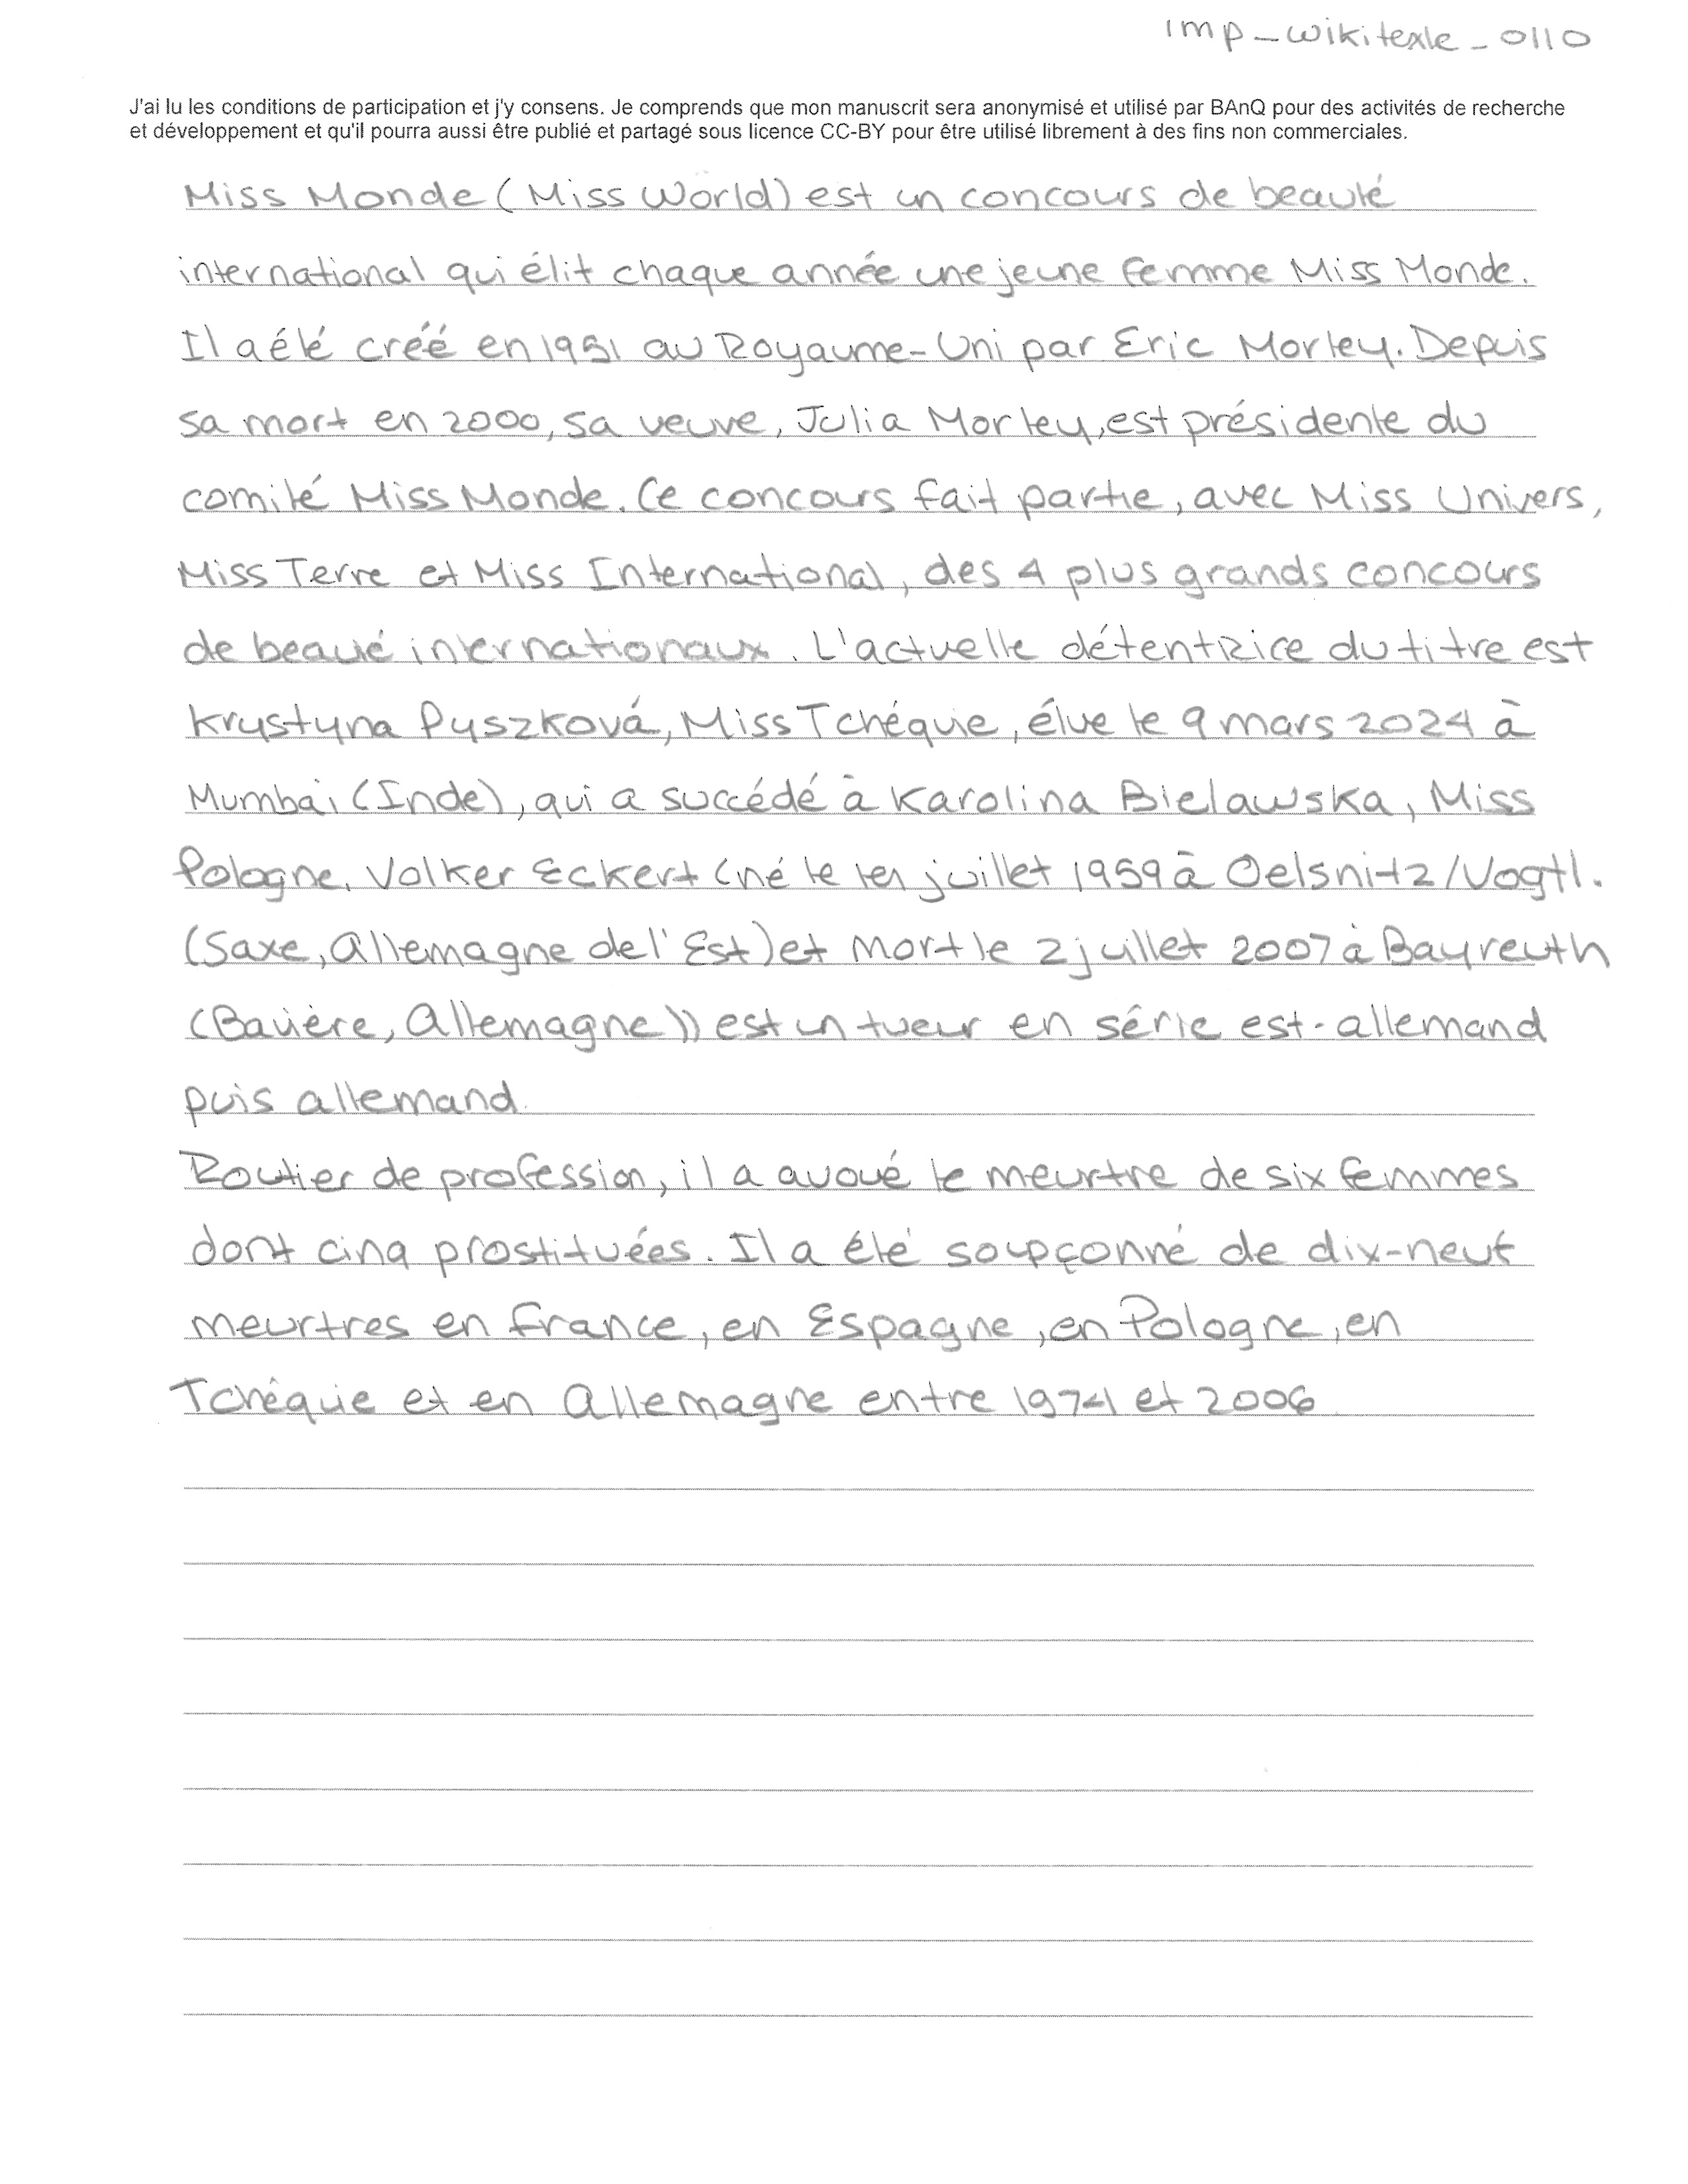 imp_wikitexte_0110
J'ai lu les conditions de participation et j'y consens. Je comprends que mon manuscrit sera anonymisé et utilisé par BAnQ pour des activités de recherche
et développement et qu'il pourra aussi être publié et partagé sous licence CC-BY pour être utilisé librement à des fins non commerciales.
Miss Monde (Miss World) est un concours de beauté
international qui élit chaque année une jeune femme Miss Monde.
Il a été créé en 1951 au Royaume-Uni par Eric Morley. Depuis
sa mort en 2000, sa veuve, Julia Morley, est présidente du
comité Miss Monde. Ce concours fait partie, avec Miss Univers,
Miss Terre et Miss International, des 4 plus grands concours
de beauté internationaux. L'actuelle détentrice du titre est
Krystyna Pyszková, Miss Tchéquie, élue le 9 mars 2024 à
Mumbai (Inde), qui a succédé à Karolina Bielawska, Miss
Pologne. Volker Eckert (né le 1er juillet 1959 à Oelsnitz/Vogtl.
(Saxe, Allemagne de l'Est) et mort le 2 juillet 2007 à Bayreuth
(Bavière, Allemagne)) est un tueur en série est-allemand
puis allemand.
Routier de profession, il a avoué le meurtre de six femmes
dont cinq prostituées. Il a été soupçonné de dix-neuf
meurtres en France, en Espagne, en Pologne, en
Tchéquie et en Allemagne entre 1974 et 2006